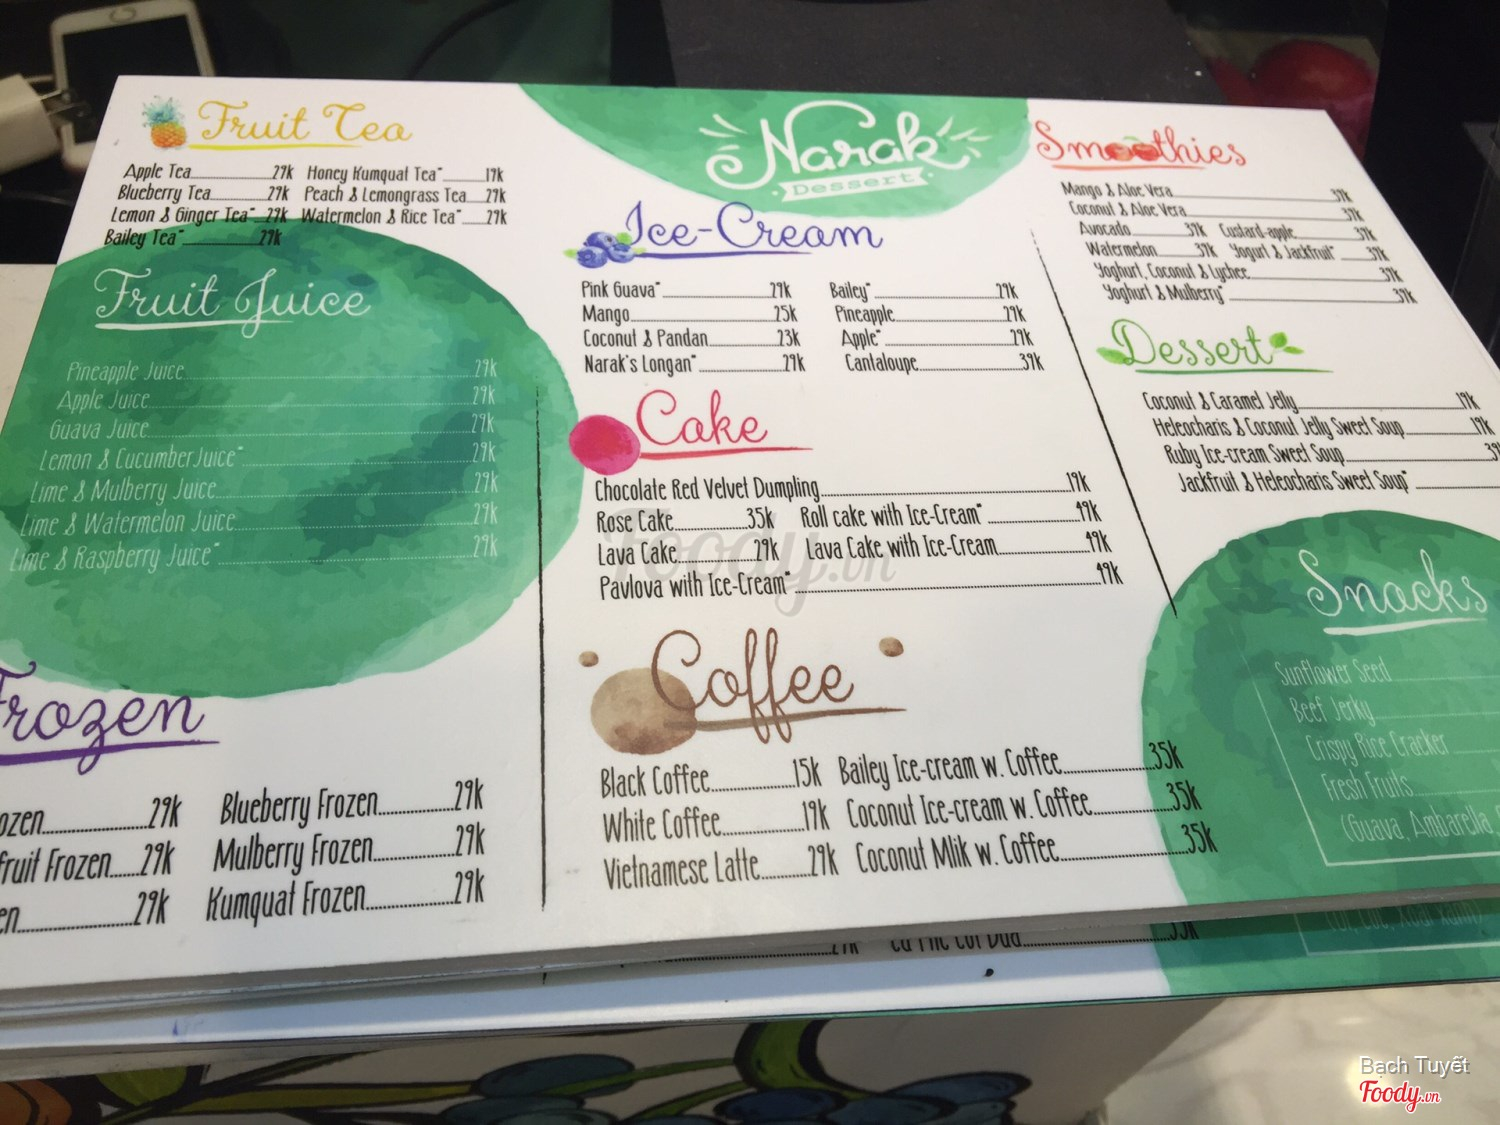 Fruit Tea
Apple Tea 29k Honey Kumquat Tea* 19k
Blueberry Tea 29k Peach & Lemongrass Tea 29k
Lemon & Ginger Tea* 29k Watermelon & Rice Tea* 29k
Bailey Tea* 29k
Fruit Juice
Pineapple Juice 29k
Apple Juice 29k
Guava Juice 29k
Lemon & CucumberJuice* 29k
Lime & Mulberry Juice 29k
Lime & Watermelon Juice 29k
Lime & Raspberry Juice* 29k
Frozen
29k Blueberry Frozen 29k
Frozen 29k Mulberry Frozen 29k
29k Kumquat Frozen 29k
Narak
Dessert
Ice-Cream
Pink Guava* 29k Bailey* 29k
Mango 25k Pineapple 29k
Coconut & Pandan 23k Apple* 29k
Narak's Longan* 29k Cantaloupe 39k
Cake
Chocolate Red Velvet Dumpling 19k
Rose Cake 35k Roll cake with Ice-Cream* 49k
Lava Cake 29k Lava Cake with Ice-Cream 49k
Pavlova with Ice-Cream* 49k
Coffee
Black Coffee 15k Bailey Ice-cream w. Coffee 35k
White Coffee 19k Coconut Ice-cream w. Coffee 35k
Vietnamese Latte 29k Coconut Mlik w. Coffee 35k
Smoothies
Mango & Aloe Vera 39k
Coconut & Aloe Vera 39k
Avocado 39k Custard-apple 39k
Watermelon 39k Yogurt & Jackfruit* 39k
Yoghurt, Coconut & Lychee 39k
Yoghurt & Mulberry* 39k
Dessert
Coconut & Caramel Jelly 19k
Heleocharis & Coconut Jelly Sweet Soup 19k
Ruby Ice-cream Sweet Soup
Jackfruit & Heleocharis Sweet Soup*
Snacks
Sunflower Seed
Beef Jerky
Crispy Rice Cracker
Fresh Fruits
(Guava, Ambarella,
29k 35k
Foody.vn
Bạch Tuyết
Foody.vn